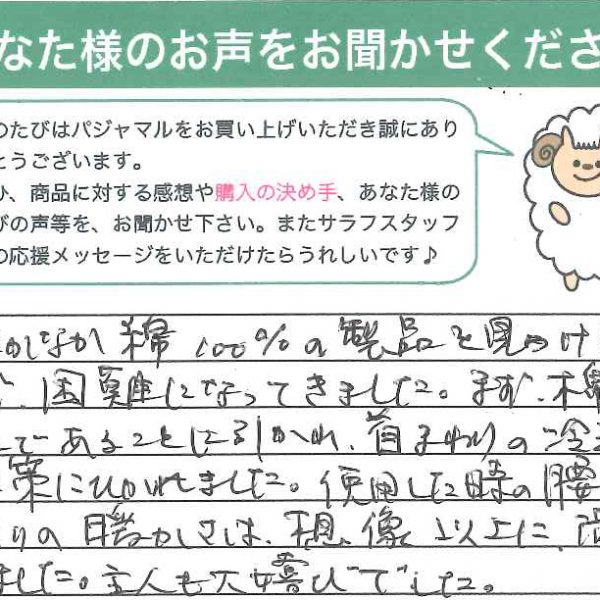 なた様のお声をお聞かせくださ
のたびはパジャマルをお買い上げいただき誠にあり
とうございます。
ひ、商品に対する感想や購入の決め手、あなた様の
びの声等を、お聞かせ下さい。またサラフスタッフ
の応援メッセージをいただけたらうれしいです♪
なか綿100%の製品を見つけ
困難になってきました。まず、木綿
であることに引かれ、首まわりの冷
案にひかれました。使用した時の腰
りの暖かさは、想像以上に
ました。主人も大喜びでした。